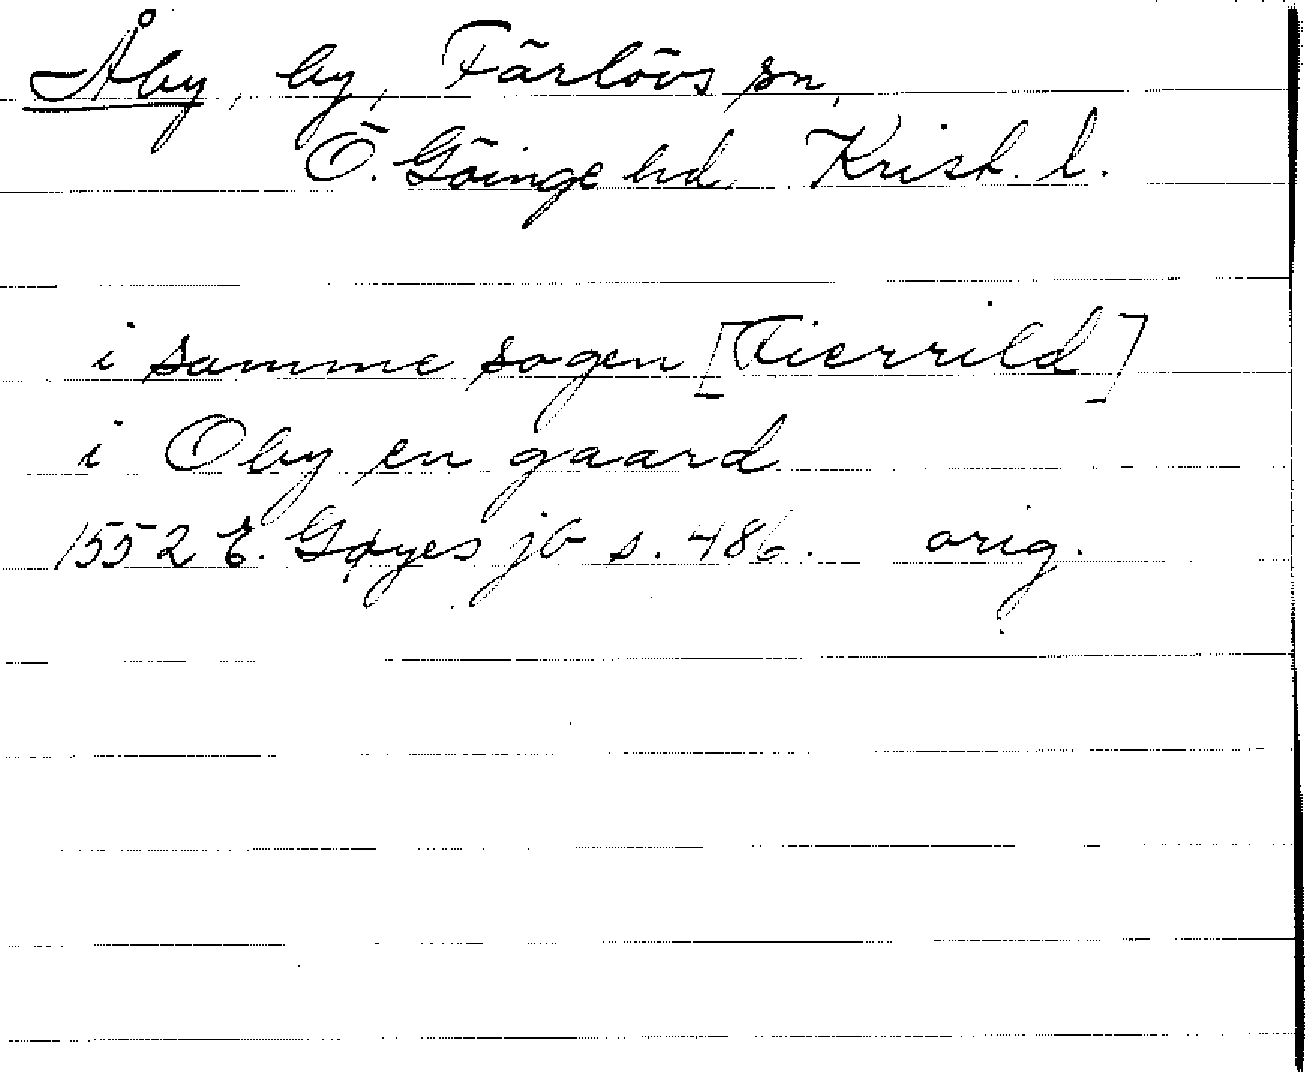 Åby, by, Färlövs sn,
Ö. Göinge hd. Krist. l.
i samme sogen [Kierrild]
i Oby en gaard
1552 E. Gøyes jb s. 486. orig.